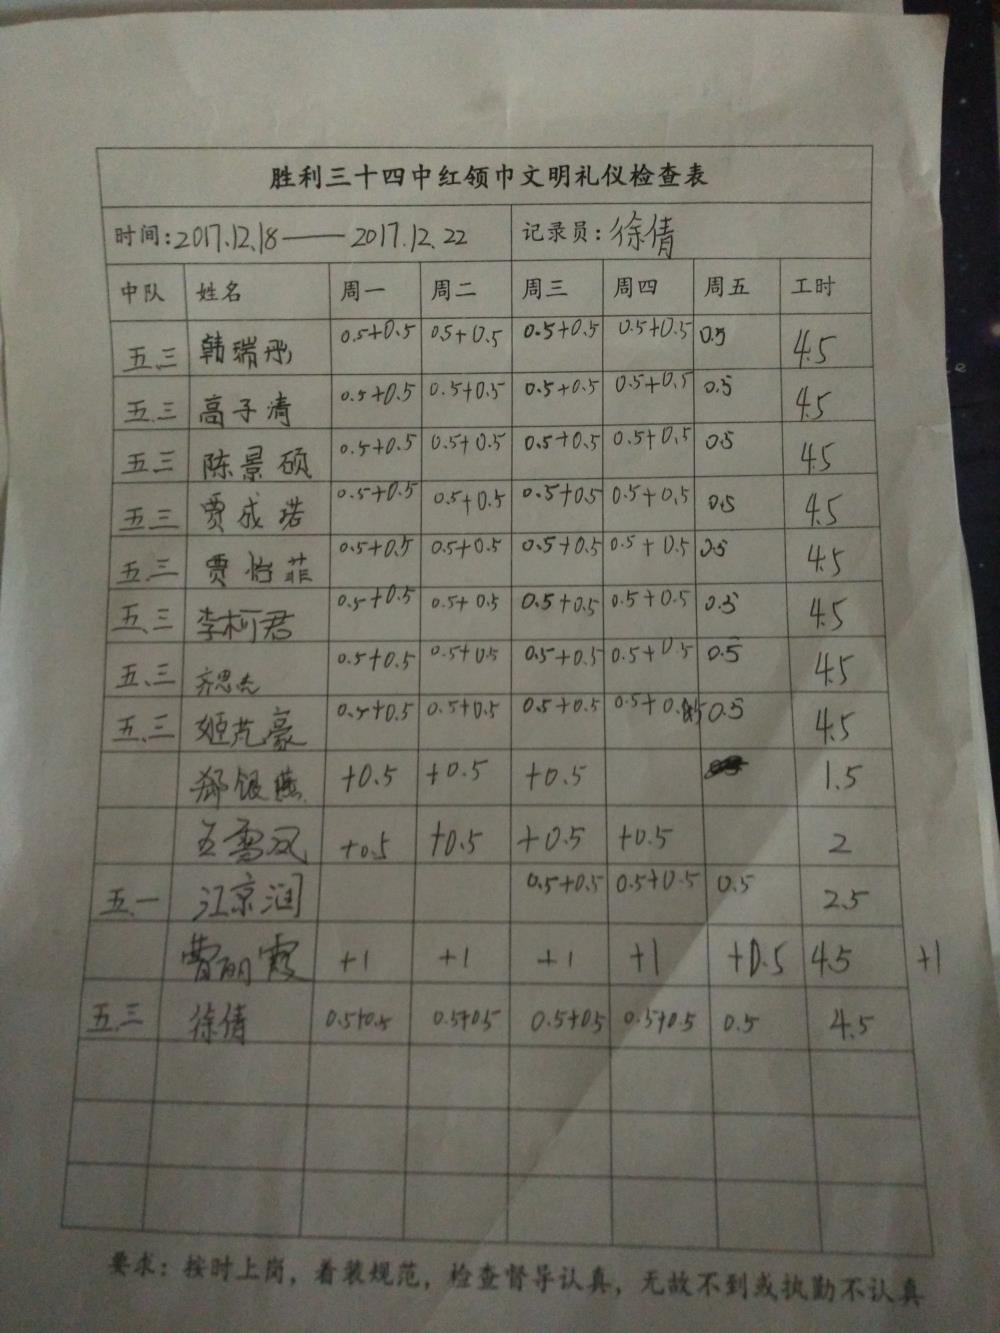 胜利三十四中红领巾文明礼仪检查表
时间:2017.12.18——2017.12.22 记录员:徐倩
中队 姓名 周一 周二 周三 周四 周五 工时
五.三 韩瑞彤 0.5+0.5 0.5+0.5 0.5+0.5 0.5+0.5 0.5 4.5
五.三 高子清 0.5+0.5 0.5+0.5 0.5+0.5 0.5+0.5 0.5 4.5
五.三 陈景硕 0.5+0.5 0.5+0.5 0.5+0.5 0.5+0.5 0.5 4.5
五.三 贾成诺 0.5+0.5 0.5+0.5 0.5+0.5 0.5+0.5 0.5 4.5
五.三 贾怡菲 0.5+0.5 0.5+0.5 0.5+0.5 0.5+0.5 0.5 4.5
五.三 李柯君 0.5+0.5 0.5+0.5 0.5+0.5 0.5+0.5 0.5 4.5
五.三 齐思杰 0.5+0.5 0.5+0.5 0.5+0.5 0.5+0.5 0.5 4.5
五.三 姬芃豪 0.5+0.5 0.5+0.5 0.5+0.5 0.5+0.5 0.5 4.5
郑银燕 +0.5 +0.5 +0.5 1.5
王雪双 +0.5 +0.5 +0.5 +0.5 2
五.一 江京润 0.5+0.5 0.5+0.5 0.5 2.5
曹丽霞 +1 +1 +1 +1 +0.5 4.5 +1
五.三 徐倩 0.5+0.5 0.5+0.5 0.5+0.5 0.5+0.5 0.5 4.5
要求：按时上岗，着装规范，检查督导认真，无故不到或执勤不认真